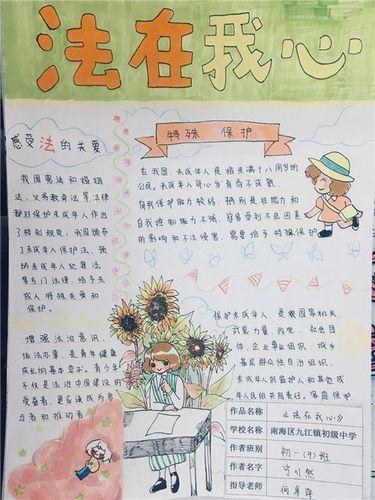 法在我心
感受法的关爱
我国宪法和婚姻
法、义务教育法等法律
都对保护未成年人作出
了特别规定，我国颁布
了未成年人保护法、预
防未成年人犯罪法
等专门法律，给予未
成年人特殊关爱和
保护。
增强法治意识、
依法办事，是青年健康
成长的基本要求。青少年
不仅是法治中国建设的
受益者，更应该成为参
与者和推动者
特殊 保护
在我国，未成年人是指未满十八周岁的
公民，未成年人身心发育尚不成熟，
自我保护能力较弱，特别是辨别能力和
自我控制能力不够，容易受到不良因素
的影响和不法侵害，需要给予特殊保护
保护未成年人，是我国国家机关、
武装力量、政党、社会团
体、企业事业组织、城乡
基层群众性自治组织、
未成年人的监护人和其他成
年人的共同责任。家庭保护、
作品名称 《法在我心》
学校名称 南海区九江镇初级中学
作者班别 初一(9)班
作者名字
指导老师